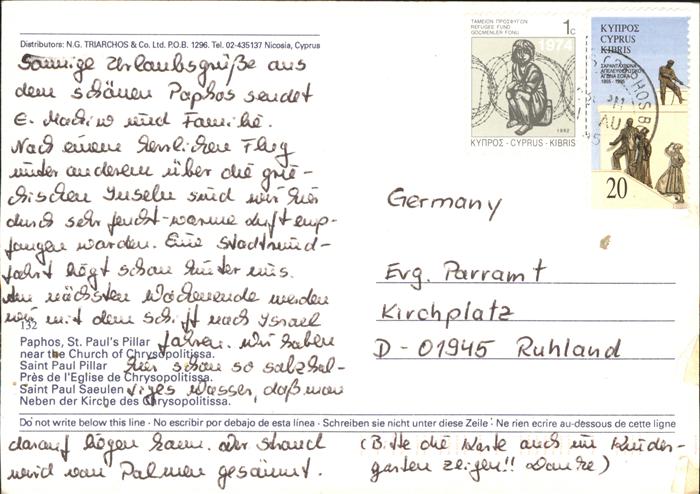 Distributors: N.G. TRIARCHOS & Co. Ltd. P.O.B. 1296. Tel. 02-435137 Nicosia, Cyprus
Sonnige Urlaubsgrüße aus
dem schönen Paphos sendet
E. und Familie.
Nach einem herrlichen Flug
unter anderem über die grie-
chischen Inseln sind wir hier
durch sehr feucht-warme Luft emp-
fangen worden. Eine Stadtrund-
fahrt liegt schon hinter uns.
Am nächsten Wochenende werden
wir mit dem Schiff nach Israel
132
fahren. Wir haben
Paphos, St. Paul's Pillar
near the Church of Chrysopolitissa.
hier schon so salzhal-
Saint Paul Pillar
Près de l'Eglise de Chrysopolitissa.
tiges Wasser, daß man
Saint Paul Saeulen
Neben der Kirche des Chrysopolitissa.
Do not write below this line - No escribir por debajo de esta línea - Schreiben sie nicht unter diese Zeile - Ne rien ecrire au-dessous de cette ligne
darauf liegen kann. Der Strand
wird von Palmen gesäumt.
(Bitte die Karte auch im Kinder-
garten zeigen!! Danke)
ΤΑΜΕΙΟΝ ΠΡΟΣΦΥΓΩΝ
REFUGEE FUND
GÖÇMENLER FONU
1c
1974
1992
ΚΥΠΡΟΣ - CYPRUS - KIBRIS
ΚΥΠΡΟΣ
CYPRUS
KIBRIS
ΣΑΡΑΝΤΑΧΡΟΝΑ
ΑΠΕΛΕΥΘΕΡΩΤΙΚΟΥ
ΑΓΩΝΑ ΕΟΚΑ
1955 - 1995
20
PAPHOS
AU
Germany
Evg. Parramt
Kirchplatz
D - 01945 Ruhland